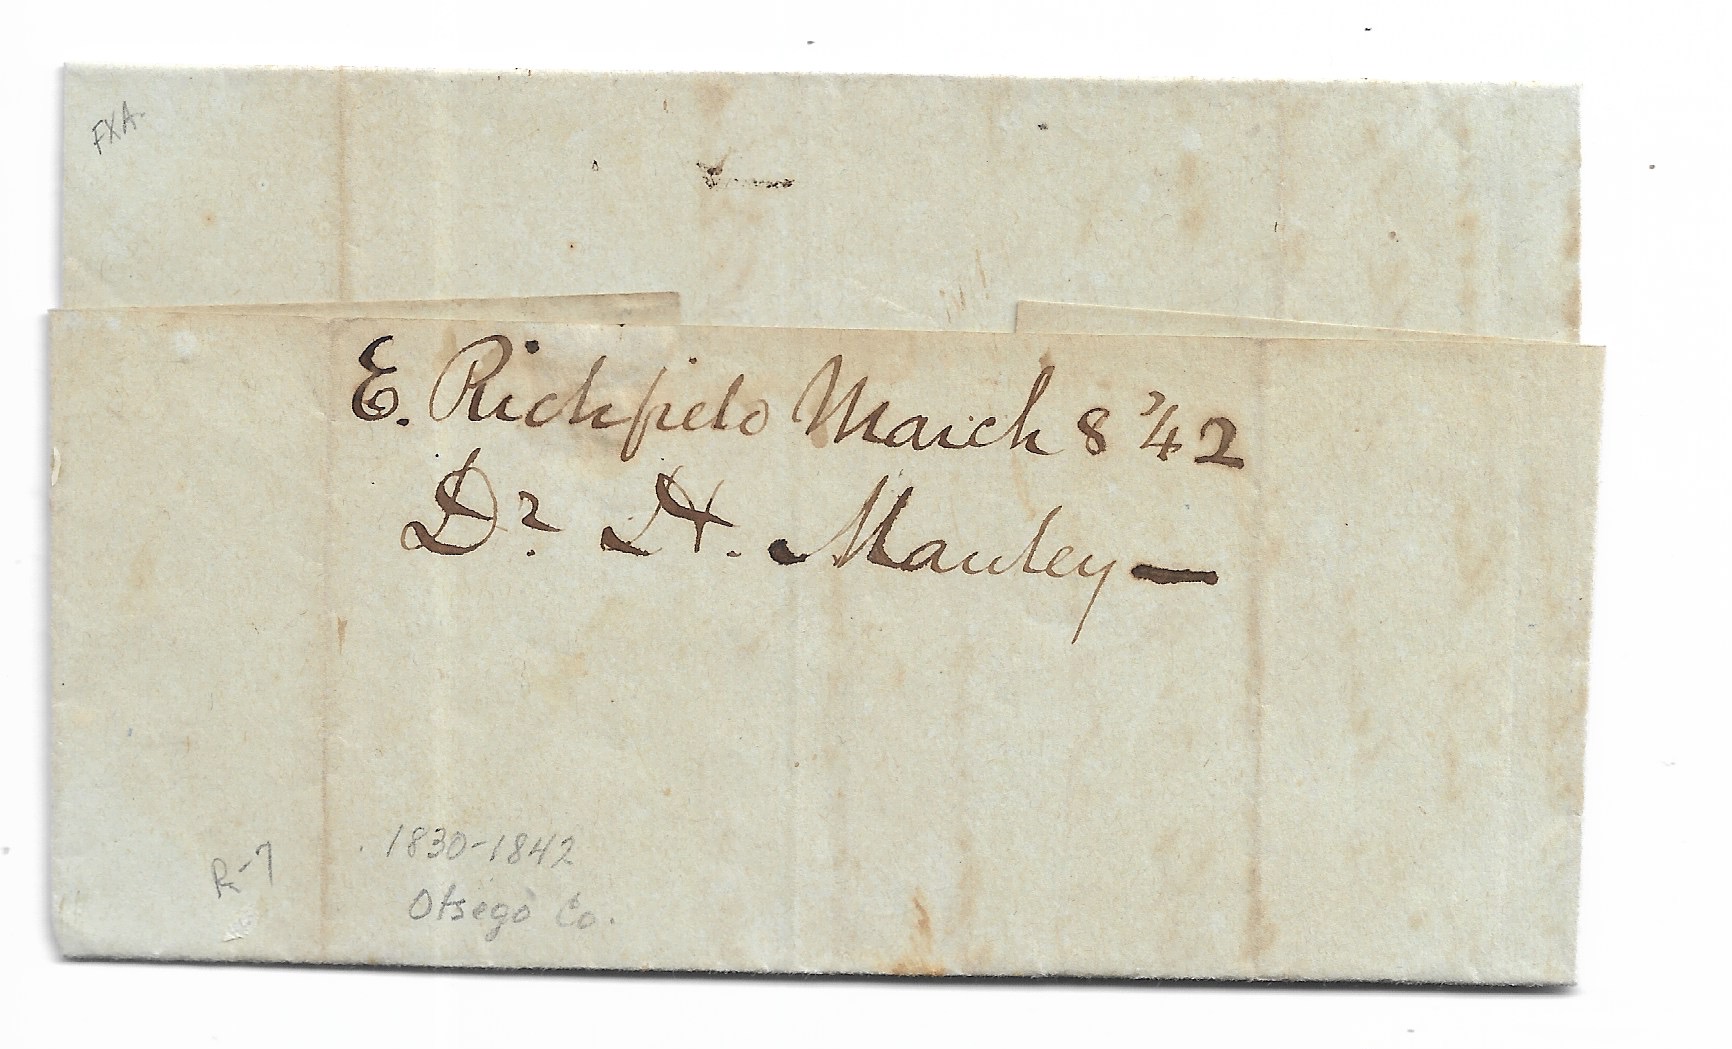 FXA.
E. Richfield March 8 '42
Dr. H. Manley —
1830-1842
R-7
Otsego Co.